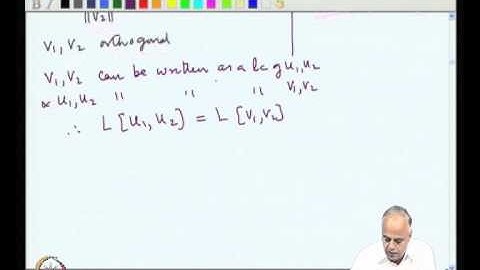 ||V2||
V1, V2 orthogonal
V1, V2 can be written as a lc of u1, u2
& u1, u2 " " " V1, V2
∴ L [u1, u2] = L [V1, V2]